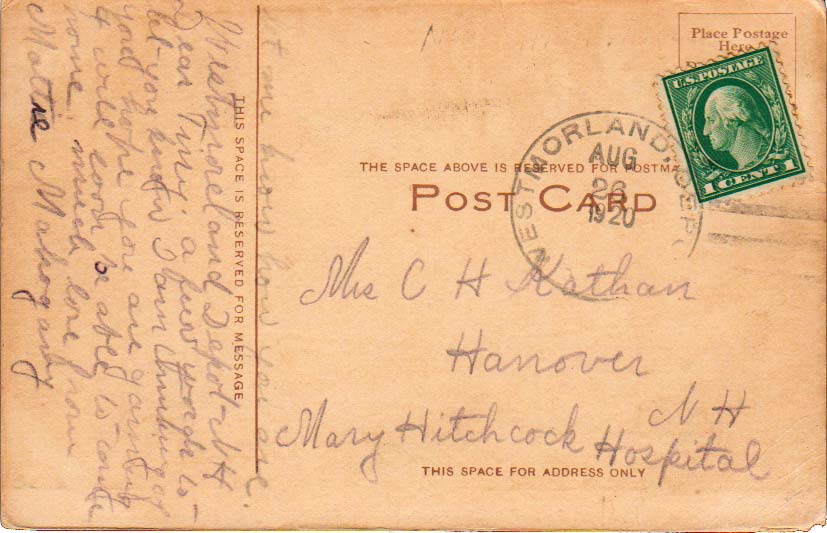 Place Postage
Here
U.S. POSTAGE
1 CENT 1
WESTMORLAND, DEP
AUG
26
1920
THE SPACE ABOVE IS RESERVED FOR POSTMA
POST CARD
Mrs C H Kathan
Hanover
N H
Mary Hitchcock Hospital
THIS SPACE FOR ADDRESS ONLY
THIS SPACE IS RESERVED FOR MESSAGE
Westmoreland Depot NH
Dear a few words to
let you know I am thinking of
you hope you are gaining
& will soon be able to come
home, much love from
Mattie Mahogany
let me know how you are.